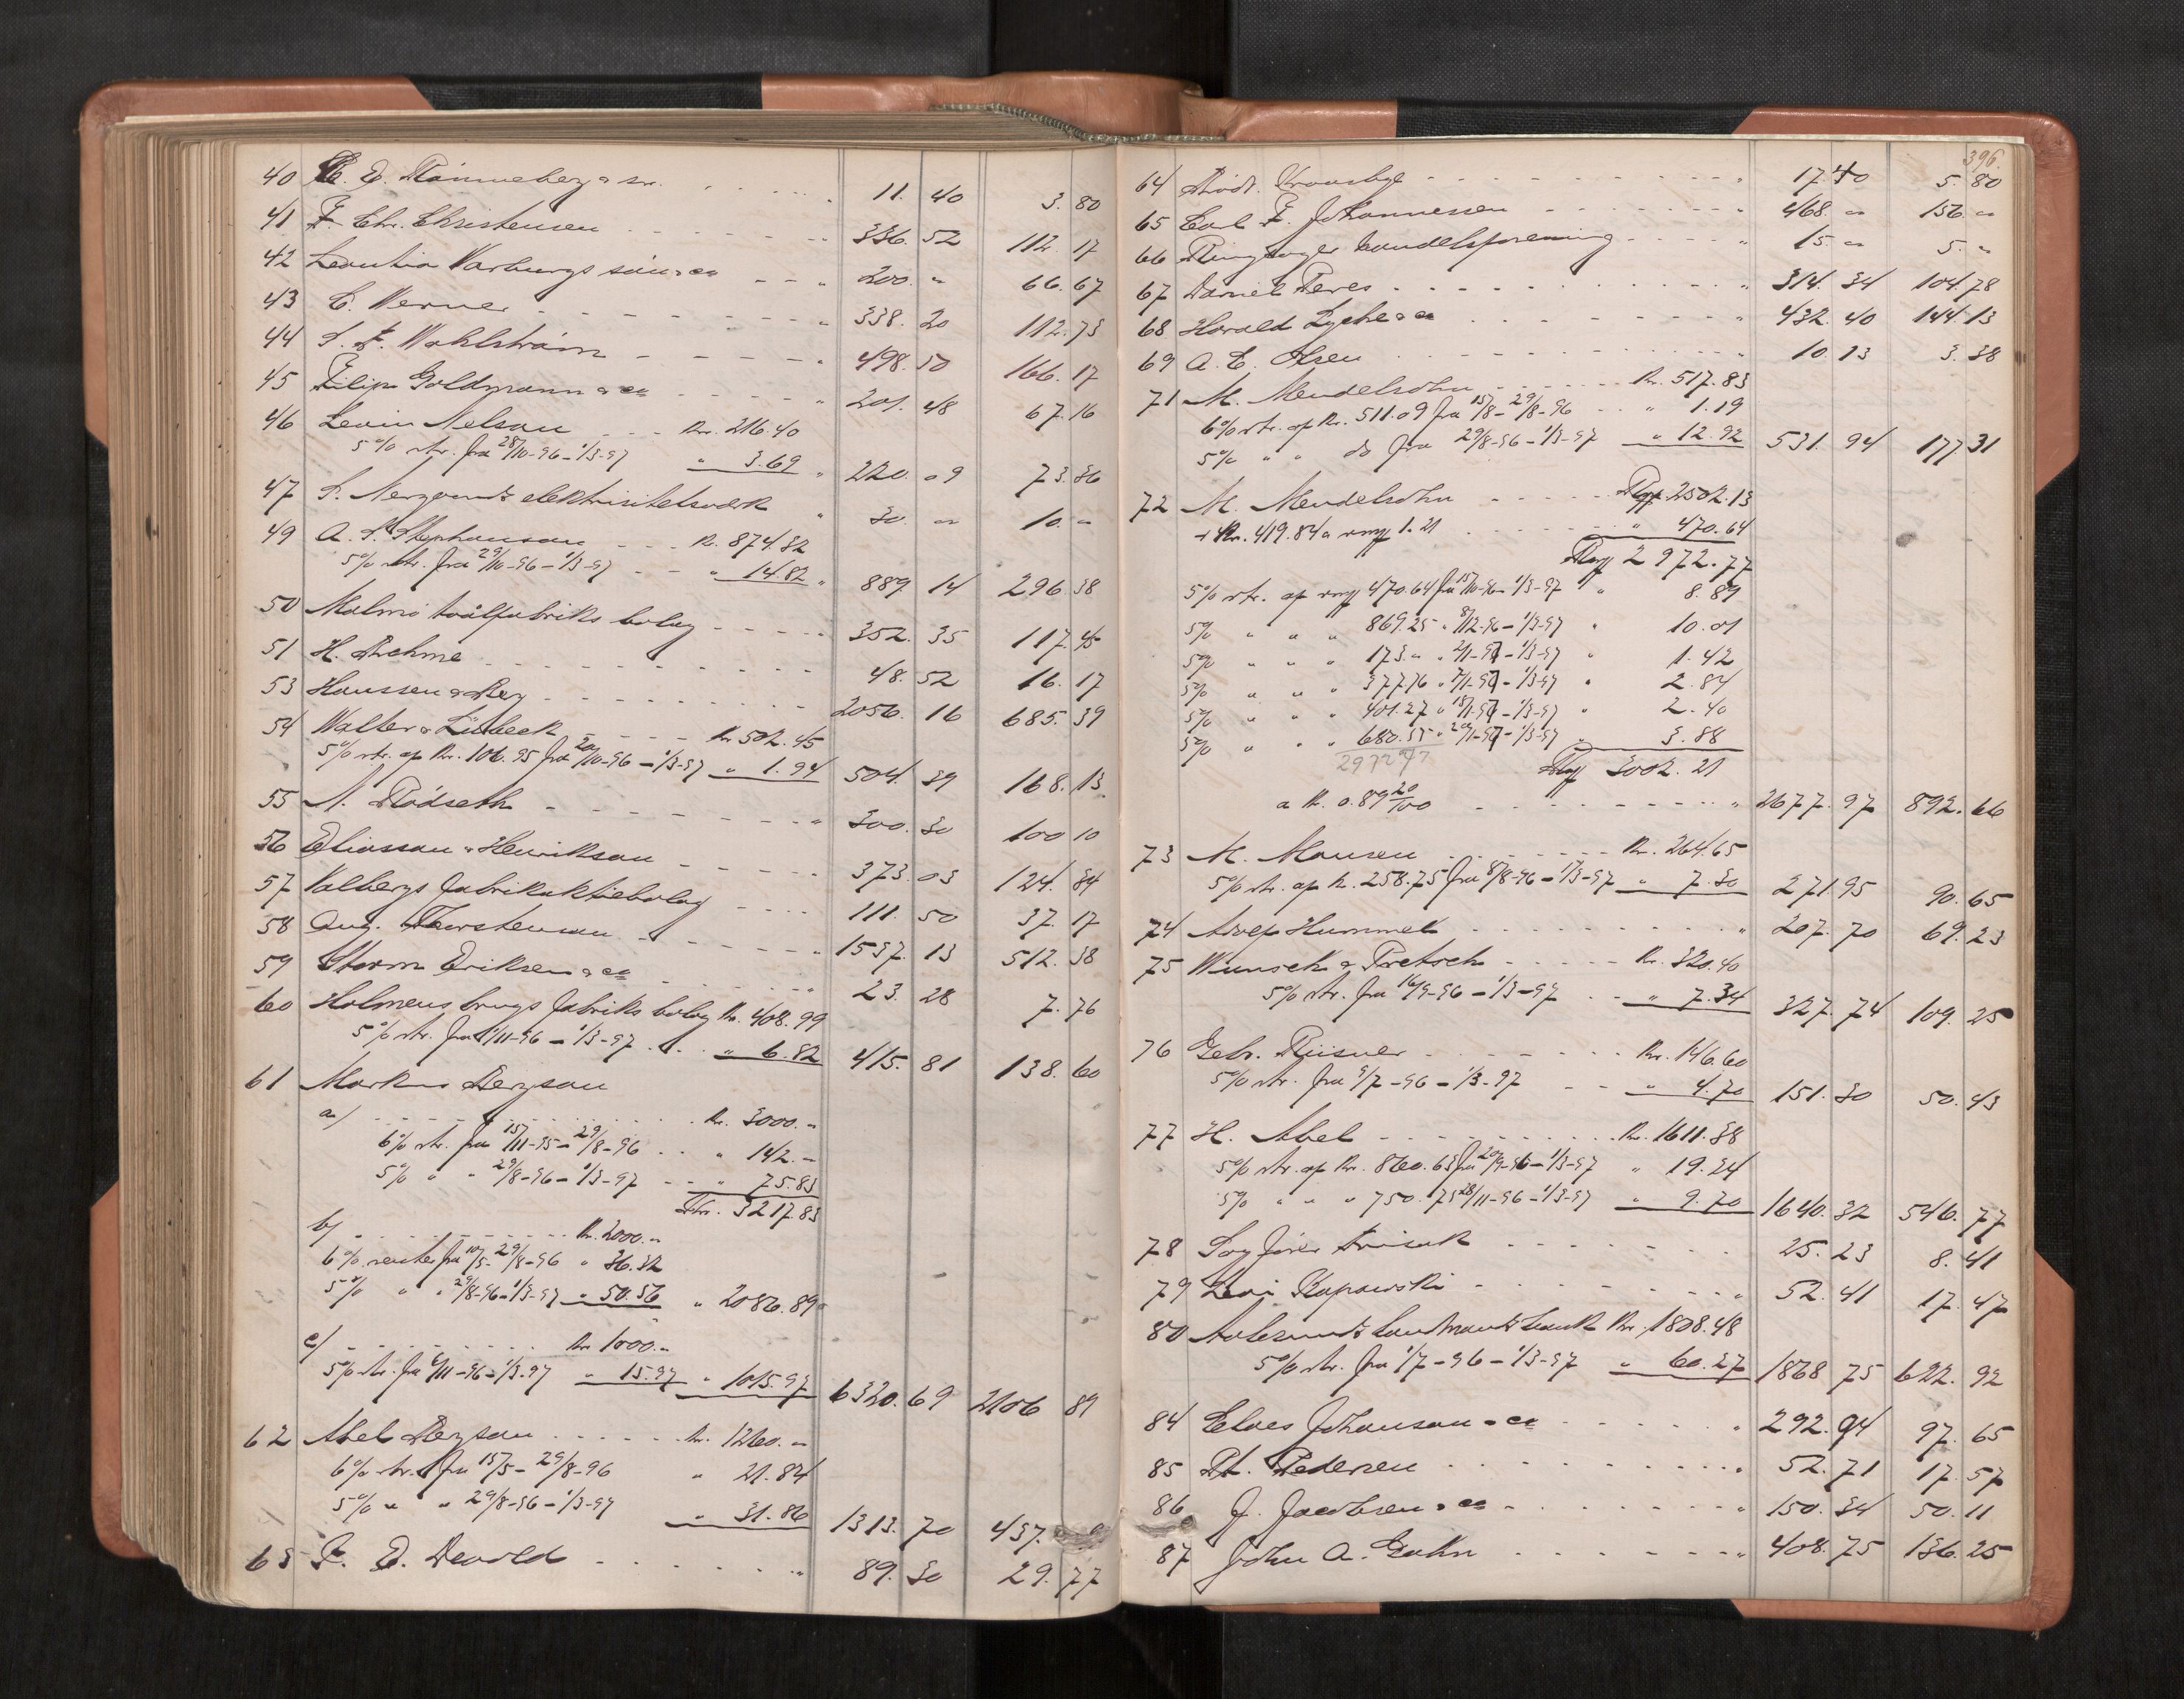 40 C. E. Rönneberg & sn. 11. 40 3. 80
41 F. Chr. Christensen 336. 52 112. 17
42 Leontin Warburgs sön & co 200. " 66. 67
43 C. Werner 338. 20 112. 73
44 S. F. Wahlström 498. 50 166. 17
45 Filip Goldmann & co 201. 48 67. 16
46 Levin Nelson Kr. 216.40
5% rtr. fra 28/10-96 - 1/3-97 " 3.69 220. 09 73. 36
47 S. elektrisitetsverk 30. " 10. "
49 A. S. Stephansen K. 874.32
5% rtr. fra 29/10-96 - 1/3-97 " 14.82 889. 14 296. 38
50 Malmö tvålfabriks bolag 352. 35 117. 45
51 H. Rehme 48. 52 16. 17
53 Hanssen & Berg 2056. 16 685. 39
54 Walter & Lübeck Kr 502.45
5% rtr. af Kr. 106.95 fra 20/10-96 - 1/3-97 " 1.94 504. 39 168. 13
55 N. Rödseth 300. 30 100 10
56 Eliassen & Henrikson 373. 03 124. 34
57 Valbergs fabriksaktiebolag 111. 50 37. 17
58 Aug. Thorstensen 1537. 13 512. 38
59 Storm Eriksen & co 23. 28 7. 76
60 Holmens brugs fabriks bolag Kr. 408.99
5% rtr. fra 1/11-96 - 1/3-97 " 6.82 415. 81 138. 60
61 Markus Bergson
a/ Kr. 3000. "
6% rtr. fra 15/11-95 - 29/8-96 " 142. "
5% " " 29/8-96 - 1/3-97 " 75.83
Kr. 3217.83
b/ Kr. 2000. "
6% renter fra 10/5 - 29/8-96 " 36.32
5% " " 29/8-96 - 1/3-97 " 50.56 " 2086.89
c/ Kr 1000. "
5% rtr. fra 6/11-96 - 1/3-97 " 15.97 " 1015.97 6320. 69 2106 89
62 Abel Bergson Kr. 1260. "
6% rtr. fra 15/5 - 29/8-96 " 21.84
5% " " 29/8-96 - 1/3-97 " 31.86 1313. 70 437.
63 F. E. Devold 89. 30 29. 77
396.
64 Kronsbye 17. 40 5. 80
65 Carl F. Johannessen 468. " 156. "
66 Ringsager handelsforening 15. " 5. "
67 Daniel Peres 314. 34 104. 78
68 Harald Lyche & co 432. 40 144. 13
69 A. E. Olsen 10. 13 3. 38
71 M. Mendelsohn Kr. 517.83
6% rtr. af Kr. 511.09 fra 15/8 - 29/8-96 " 1.19
5% " " do fra 29/8-96 - 1/3-97 " 12.92 531. 94 177. 31
72 M. Mendelsohn Rmf 2502.13
+ Kr. 419.84 a rmf 1.21 " 470.64
Rmf 2972.77
5% rtr. af rmf 470.64 fra 15/10-96 - 1/3-97 " 8.89
5% " " " 869.25 " 8/12-96 - 1/3-97 " 10.01
5% " " " 173. " " 2/1-97 - 1/3-97 " 1.42
5% " " " 377.76 " 7/1-97 - 1/3-97 " 2.84
5% " " " 401.27 " 18/1-97 - 1/3-97 " 2.40
5% " " " 680.55 " 20/1-97 - 1/3-97 " 3.88
2972 47 Rmf 3002.21
a Kr. 0.89 20/100 2677. 97 892. 66
73 M. Monsen Kr. 264.65
5% rtr. af Kr. 258.75 fra 8/8-96 - 1/3-97 " 7.30 271. 95 90. 65
74 Hummel 207. 70 69. 23
75 Wunsch & Pretsch Kr. 320.40
5% rtr. fra 16/9-96 - 1/3-97 " 7.34 327. 74 109. 25
76 Gebr. Kr. 146.60
5% rtr. fra 9/7-96 - 1/3-97 " 4.70 151. 30 50. 43
77 H. Abel Kr. 1611.38
5% rtr. af Kr. 860.63 fra 20/9-96 - 1/3-97 " 19.24
5% " " " 750.75 28/11-96 - 1/3-97 " 9.70 1640. 32 546. 77
78 25. 23 8. 41
79 Levi 52. 41 17. 47
80 Aalesunds landmandsbank Kr. 1808.48
5% rtr. fra 1/7-96 - 1/3-97 " 60.27 1868 75 622. 92
84 Claes Johanson & co 292. 94 97. 65
85 Pt. Pedersen 52. 71 17. 57
86 J. Jacobsen & co 150. 34 50. 11
87 John A. Grahn 408. 75 136. 25